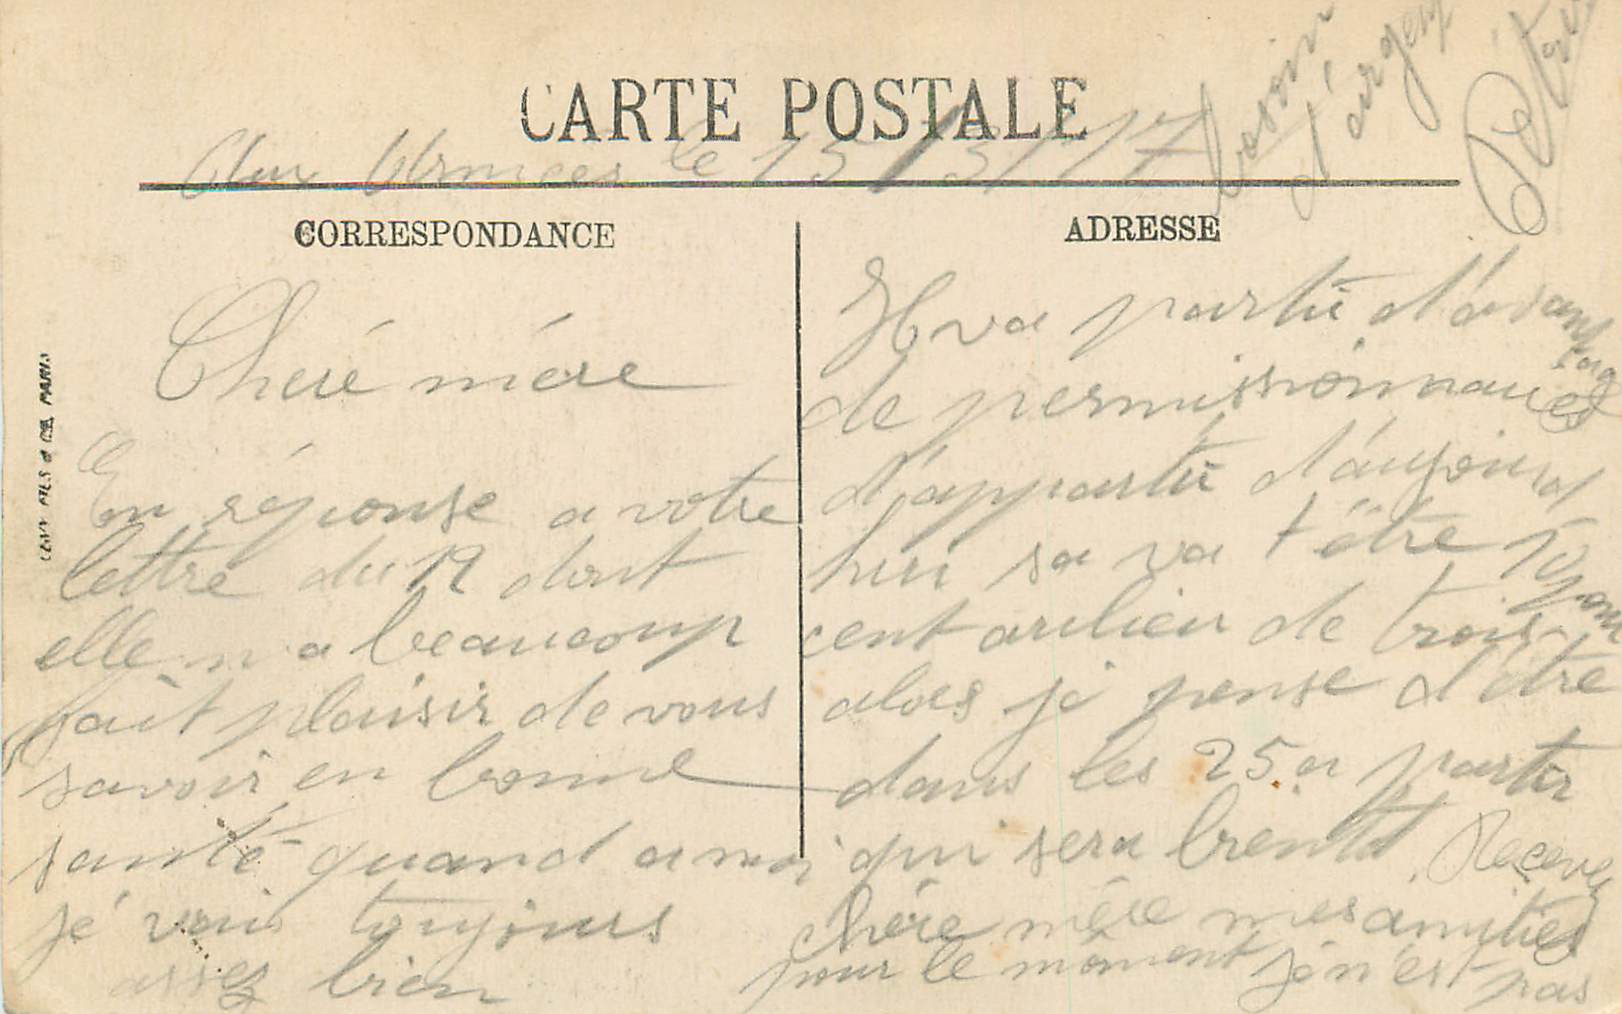 CARTE POSTALE
Aux Armées le 15/3/17
CORRESPONDANCE
Cheré mére
En réponse a votre
lettre du 12 dont
elle m a beaucoup
fait plaisir de vous
savoir en bonne
santé quand a moi
jé vais toujours
assez bien
ADRESSE
Il va partir d'avantage
de permissionnaires
d'appartir d'aujourd
hui sa va t être
cent aulieu de trois
alors je pense d'être
dans les 25 a partir
qui sera bientot Recevez
chére mére mes amitiés
pour le moment jé n'est pas
besoin
d'argent
LEVY FILS & Cie, PARIS